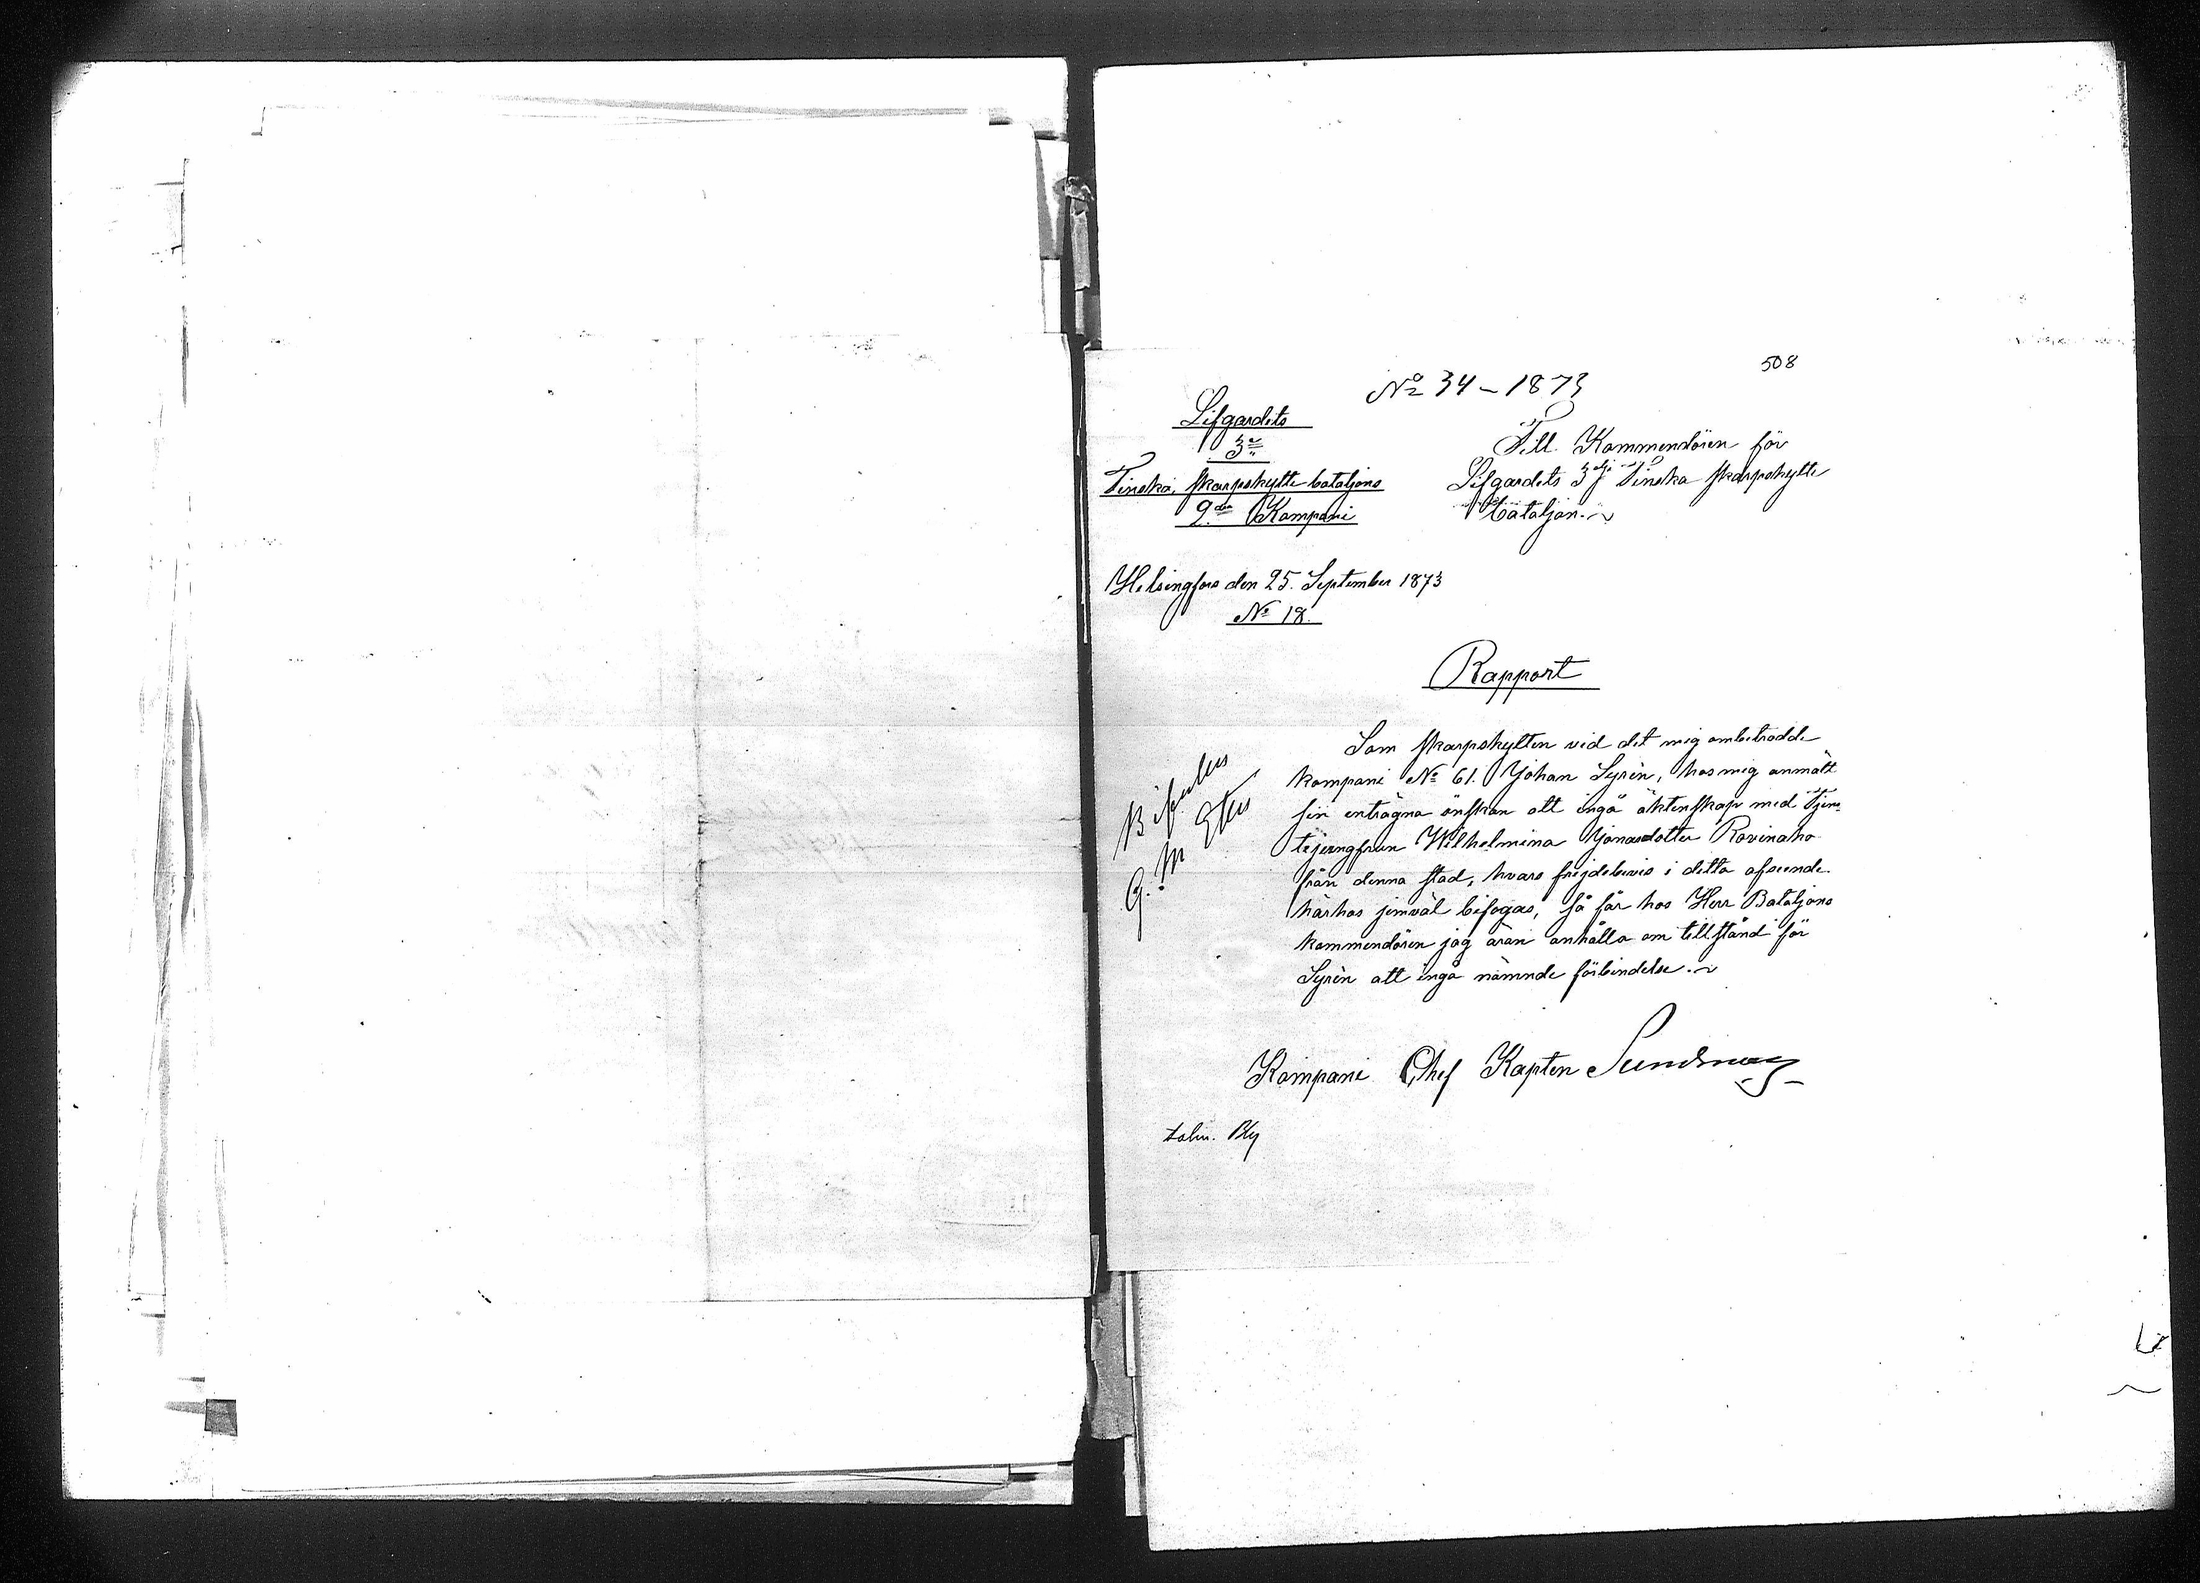 508
No 34 – 1873
Lifgardets
3e
Finska skarpskytte bataljons
2dra Kompani
Till Kommendören för
Lifgardets 3dje Finska skarpskytte
bataljon.
Helsingfors den 25. September 1873
No 18.
Rapport
Som skarpskytten vid det mig ombetrodde
kompani No 61. Johan Syrén, hos mig anmält
sin enträgna önskan att ingå äktenskap med tjens-
tejungfrun Wilhelmina Jonasdotter Rovinaho
från denna stad, hvars frejdebevis i detta afseende
härhos jemväl bifogas, så får hos Herr Bataljons
kommendören jag äran anhålla om tillstånd för
Syrén att ingå nämnde förbindelse.
Bifalles
G. M
Kompani Chef Kapten Sundman